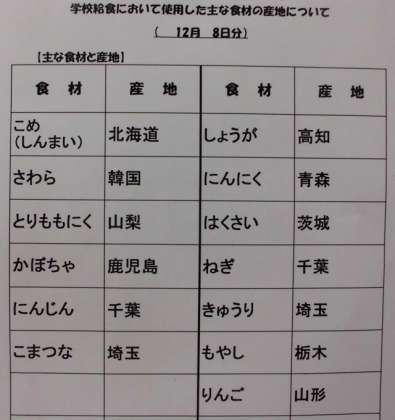 学校給食において使用した主な食材の産地について
( 12月 8日分)
【主な食材と産地】
食 材 産 地 食 材 産 地
こめ
(しんまい) 北海道 しょうが 高知
さわら 韓国 にんにく 青森
とりももにく 山梨 はくさい 茨城
かぼちゃ 鹿児島 ねぎ 千葉
にんじん 千葉 きゅうり 埼玉
こまつな 埼玉 もやし 栃木
りんご 山形